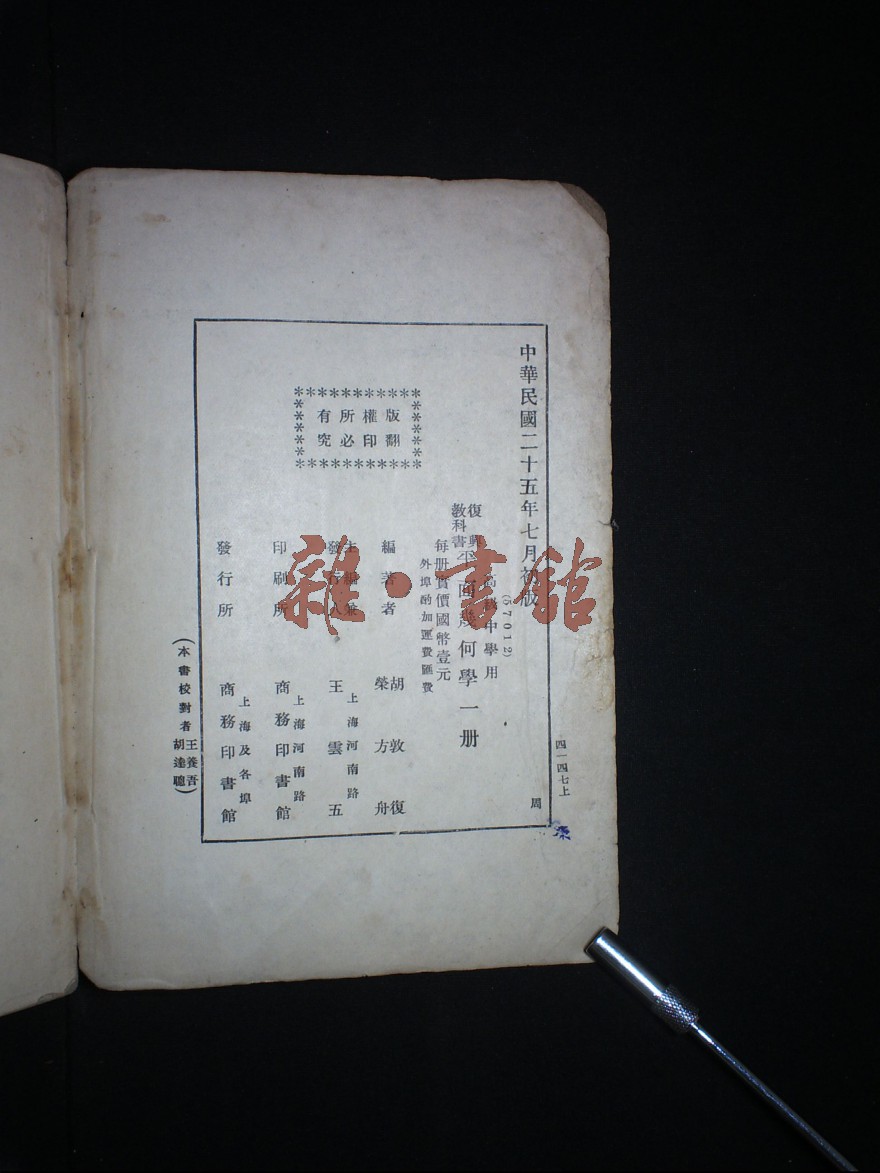 中華民國二十五年七月初版
四一四七上
周
(57012)
高級中學用
復興教科書
平面幾何學一册
每册實價國幣壹元
外埠酌加運費匯費
版權所有
翻印必究
編著者
胡敦復
榮方舟
主編兼發行人
上海河南路
王雲五
印刷所
上海河南路
商務印書館
發行所
上海及各埠
商務印書館
(本書校對者 王養吾 胡達聰)
雜·書館